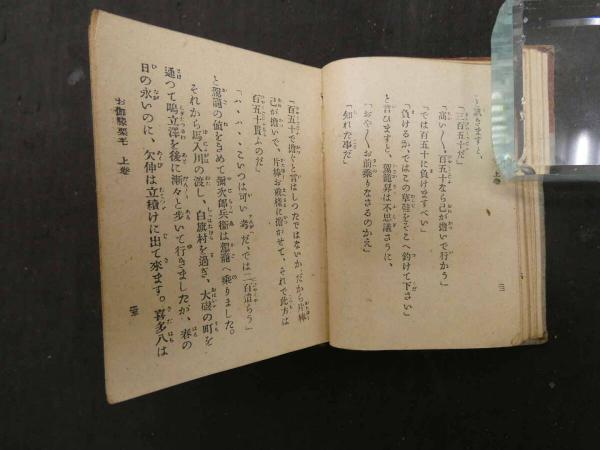 と訊きますと、
「三百五十だ」
「高い〳〵、百五十なら己が擔いで行かう」
「では百五十に負けますべい」
「負けるか、ではこの草鞋をそこへ釣けて下さい」
と言ひますと、駕籠舁は不思議さうに、
「おや〳〵お前乘りなさるのかえ」
「知れた事だ」
「百五十で擔ぐと言はしつたではないか、だから片棒
己が擔いで、片棒お乘樣に擔がせて、それで此方は
百五十貰ふのだ」
「ハ、ハ、ハ、こいつは可い考だ、では二百遣らう」
と駕籠の値をきめて彌次郎兵衞は駕籠へ乘りました。
それから馬入川の渡し、白旗村を過ぎ、大磯の町を
通つて鴫立澤を後に漸々と歩いて行きましたが、春の
日の永いのに、欠伸は立續けに出て來ます。喜多八は
お伽膝栗毛 上卷